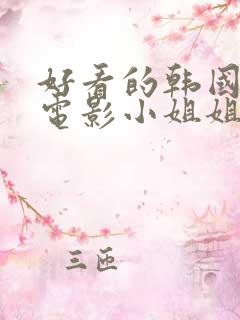 好看的韩国
电影小姐姐
三匝